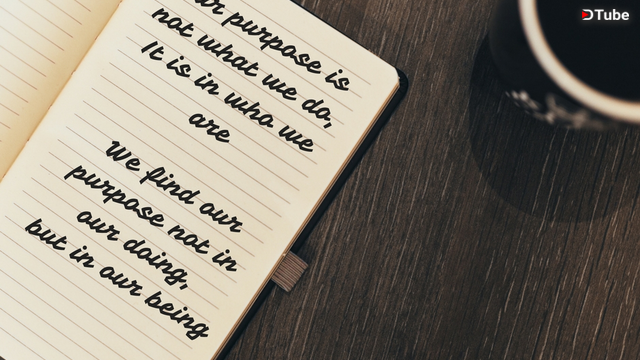 ur purpose is
not what we do,
It is in who we
are
We find our
purpose not in
our doing,
but in our being
DTube